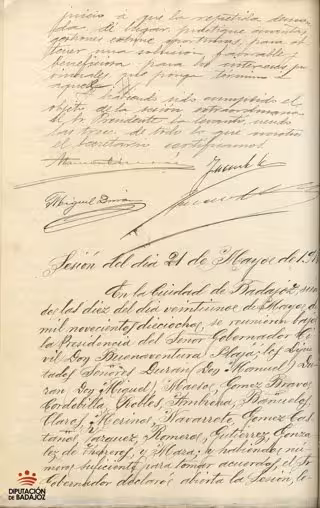 juicio a que la repetida
de llegar practique cuantas
gestiones estime oportunas para ob
tener una solución favorable y
beneficiosa para los intereses pro
vinciales que ponga término a
aquella.
Y habiéndose cumplido el
objeto de la sesión extraordinaria
el Sr. Presidente la levantó, siendo
las trece, de todo lo que nosotros
el Secretario certificamos.
Miguel Durán
Sesión del día 21 de Mayo de 191
En la Ciudad de Badajoz, sien
do las diez del día veintiuno de Mayo de
mil novecientos dieciocho, se reunieron bajo
la Presidencia del Señor Gobernador Ci
vil Don Buenaventura Plaja; los Dipu
tados Señores Durán (Don Manuel) Du
rán (Don Miguel) Macías, Gómez Bravo
Cordobilla, Robles, Fombona, Bañuelos,
Claros, Merino, Navarrete, Gómez Cas
taños, Vázquez, Romero, Gutiérrez, Gonzá
lez de y Mera, y habiendo nú
mero suficiente para tomar acuerdos, el Sr.
Gobernador declaró abierta la Sesión, le
DIPUTACIÓN
DE BADAJOZ